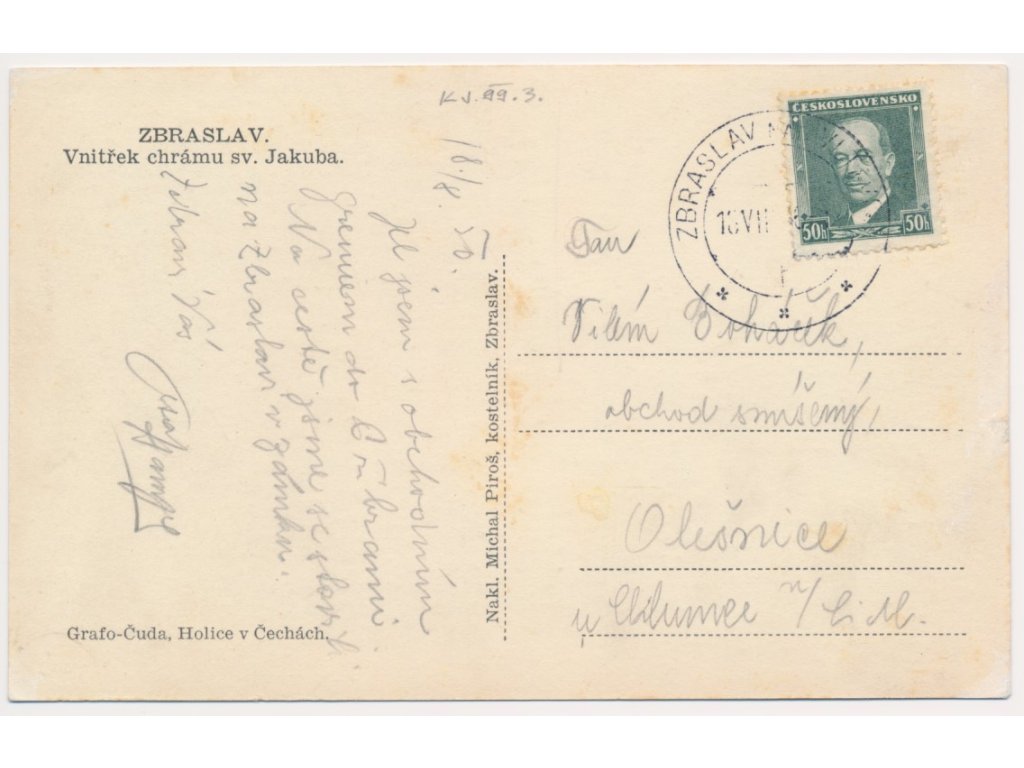 KJ. 99.3.
ZBRASLAV.
Vnitřek chrámu sv. Jakuba.
18/8.
Jel jsem s obchodním
gremiem do Příbrami
Na cestě jsme se stavili
na Zbraslavi v zámku.
Zdraví Vás
Grafo-Čuda, Holice v Čechách.
Nakl. Michal Piroš, kostelník, Zbraslav.
ZBRASLAV
ČESKOSLOVENSKO
50h 50h
Pan
Vilém Boháček,
obchod smíšený,
Olešnice
u Chlumce n/Cidl.